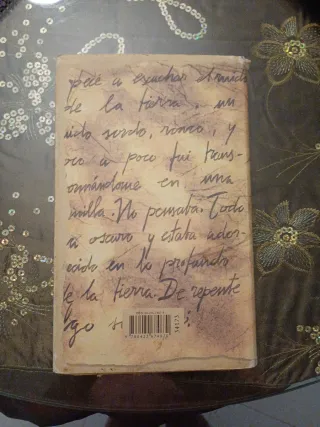 pecé a escuchar el ruido
de la tierra, un
uido sordo, ronco, y
oco a poco fui trans-
ormándome en una
milla. No pensaba. Todo
a oscuro y estaba ador-
ecido en lo profundo
e la tierra. De repente
lgo s